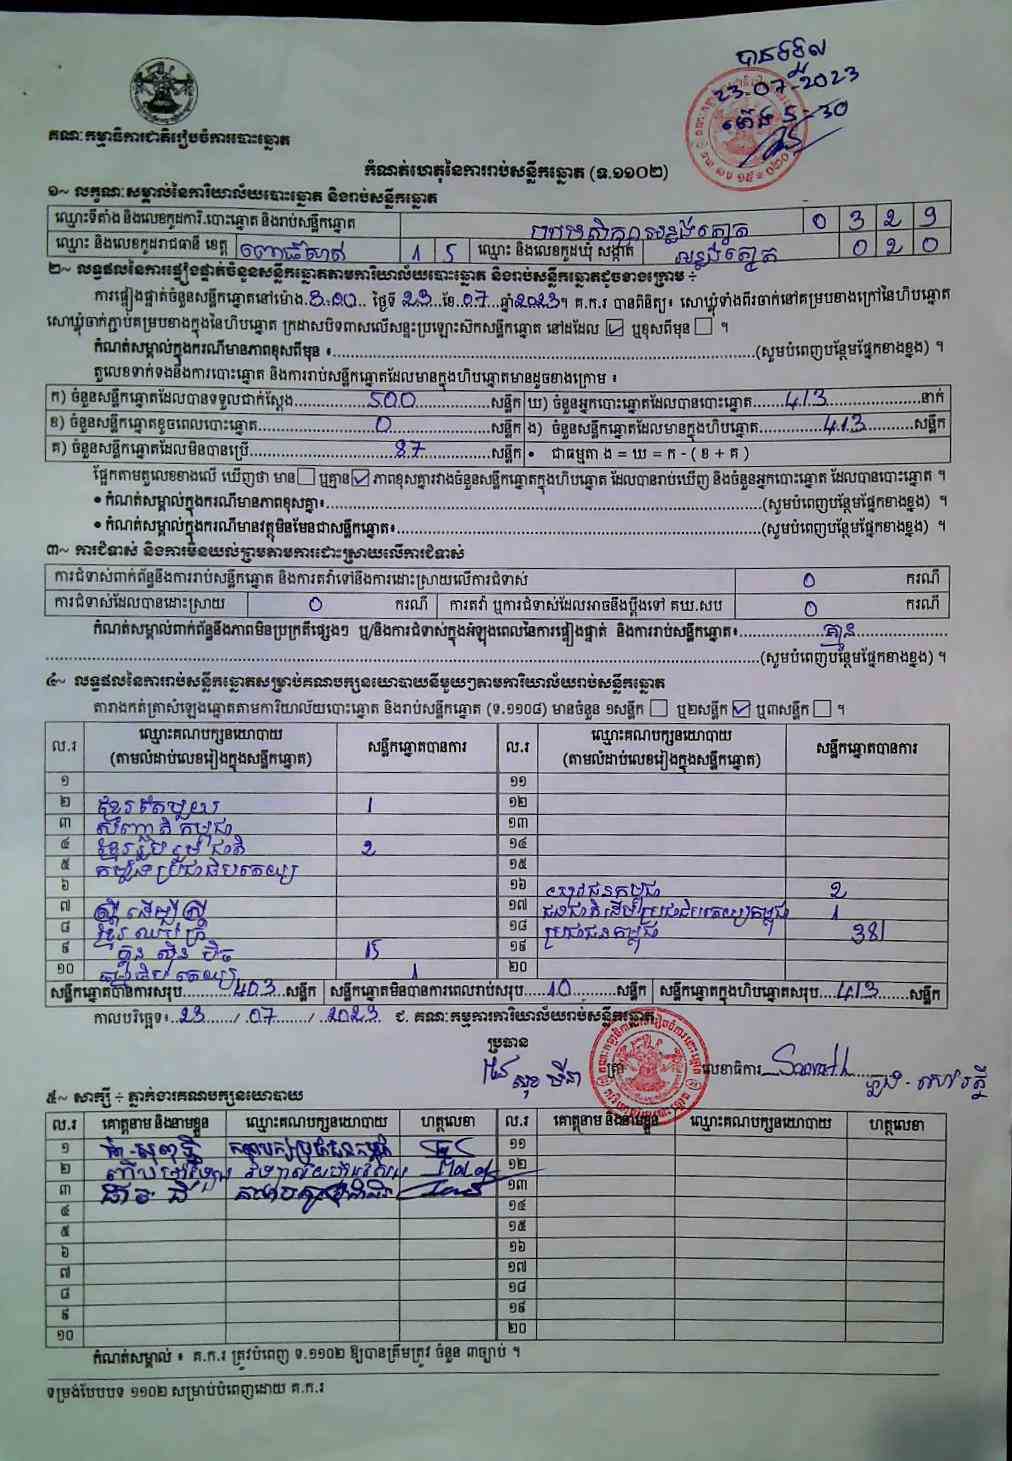 បានទទួល
23-07-2023
ម៉ោង 5-30
គណៈកម្មាធិការជាតិរៀបចំការបោះឆ្នោត
កំណត់ហេតុនៃការរាប់សន្លឹកឆ្នោត (ទ.១១០២)
១~ លក្ខណៈសម្គាល់នៃការិយាល័យបោះឆ្នោត និងរាប់សន្លឹកឆ្នោត
ឈ្មោះទីតាំង និងលេខកូដការិ.បោះឆ្នោត និងរាប់សន្លឹកឆ្នោត 0 3 2 9
ឈ្មោះ និងលេខកូដរាជធានី ខេត្ត ពោធិ៍សាត់ 1 5 ឈ្មោះ និងលេខកូដឃុំ សង្កាត់ 0 2 0
២~ លទ្ធផលនៃការផ្ទៀងផ្ទាត់ចំនួនសន្លឹកឆ្នោតតាមការិយាល័យបោះឆ្នោត និងរាប់សន្លឹកឆ្នោតដូចខាងក្រោម ÷
ការផ្ទៀងផ្ទាត់ចំនួនសន្លឹកឆ្នោតនៅម៉ោង 3:00 ថ្ងៃទី 23 ខែ 07 ឆ្នាំ 2023។ គ.ក.រ បានពិនិត្យ៖ សោឃ្លុំទាំងពីរចាក់នៅគម្របខាងក្រៅនៃហិបឆ្នោត
សោឃ្លុំចាក់ភ្ជាប់គម្របខាងក្នុងនៃហិបឆ្នោត ក្រដាសបិទពាសលើសន្ទះប្រឡោះស៊កសន្លឹកឆ្នោត នៅដដែល ☑ ឬខុសពីមុន ☐ ។
កំណត់សម្គាល់ក្នុងករណីមានភាពខុសពីមុន ៖ (សូមបំពេញបន្ថែមផ្នែកខាងខ្នង) ។
តួលេខទាក់ទងនឹងការបោះឆ្នោត និងការរាប់សន្លឹកឆ្នោតដែលមានក្នុងហិបឆ្នោតមានដូចខាងក្រោម ៖
ក) ចំនួនសន្លឹកឆ្នោតដែលបានទទួលជាក់ស្តែង 500 សន្លឹក ឃ) ចំនួនអ្នកបោះឆ្នោតដែលបានបោះឆ្នោត 413 នាក់
ខ) ចំនួនសន្លឹកឆ្នោតខូចពេលបោះឆ្នោត 0 សន្លឹក ង) ចំនួនសន្លឹកឆ្នោតដែលមានក្នុងហិបឆ្នោត 413 សន្លឹក
គ) ចំនួនសន្លឹកឆ្នោតដែលមិនបានប្រើ 87 សន្លឹក • ជាធម្មតា ង = ឃ = ក - ( ខ + គ )
ផ្អែកតាមតួលេខខាងលើ ឃើញថា មាន ☐ ឬគ្មាន ☑ ភាពខុសគ្នារវាងចំនួនសន្លឹកឆ្នោតក្នុងហិបឆ្នោត ដែលបានរាប់ឃើញ និងចំនួនអ្នកបោះឆ្នោត ដែលបានបោះឆ្នោត ។
• កំណត់សម្គាល់ក្នុងករណីមានភាពខុសគ្នា៖ (សូមបំពេញបន្ថែមផ្នែកខាងខ្នង) ។
• កំណត់សម្គាល់ក្នុងករណីមានវត្ថុមិនមែនជាសន្លឹកឆ្នោត៖ (សូមបំពេញបន្ថែមផ្នែកខាងខ្នង) ។
៣~ ការជំទាស់ និងការមិនយល់ព្រមតាមការដោះស្រាយលើការជំទាស់
ការជំទាស់ពាក់ព័ន្ធនឹងការរាប់សន្លឹកឆ្នោត និងការតវ៉ាទៅនឹងការដោះស្រាយលើការជំទាស់ 0 ករណី
ការជំទាស់ដែលបានដោះស្រាយ 0 ករណី ការតវ៉ា ឬការជំទាស់ដែលអាចនឹងប្តឹងទៅ គឃ.សប 0 ករណី
កំណត់សម្គាល់ពាក់ព័ន្ធនឹងភាពមិនប្រក្រតីផ្សេងៗ ឬ/និងការជំទាស់ក្នុងអំឡុងពេលនៃការផ្ទៀងផ្ទាត់ និងការរាប់សន្លឹកឆ្នោត៖ គ្មាន
(សូមបំពេញបន្ថែមផ្នែកខាងខ្នង) ។
៤~ លទ្ធផលនៃការរាប់សន្លឹកឆ្នោតសម្រាប់គណបក្សនយោបាយនីមួយៗតាមការិយាល័យរាប់សន្លឹកឆ្នោត
តារាងកត់ត្រាសំឡេងឆ្នោតតាមការិយាល័យបោះឆ្នោត និងរាប់សន្លឹកឆ្នោត (ទ.១១០៨) មានចំនួន ១សន្លឹក ☐ ឬ២សន្លឹក ☑ ឬ៣សន្លឹក ☐ ។
ល.រ ឈ្មោះគណបក្សនយោបាយ (តាមលំដាប់លេខរៀងក្នុងសន្លឹកឆ្នោត) សន្លឹកឆ្នោតបានការ ល.រ ឈ្មោះគណបក្សនយោបាយ (តាមលំដាប់លេខរៀងក្នុងសន្លឹកឆ្នោត) សន្លឹកឆ្នោតបានការ
១ ១១
២ ខ្មែរតែមួយ 1 ១២
៣ សញ្ជាតិកម្ពុជា ១៣
៤ ខ្មែររួបរួមជាតិ 2 ១៤
៥ កម្លាំងប្រជាធិបតេយ្យ ១៥
៦ ១៦ យុវជនកម្ពុជា 2
៧ ស្ត្រីដើម្បីស្ត្រី ១៧ ជនជាតិដើមប្រជាធិបតេយ្យកម្ពុជា 1
៨ ខ្មែរឈប់ក្រ ១៨ ប្រជាជនកម្ពុជា 381
៩ ហ៊្វុនស៊ិនប៉ិច 15 ១៩
១០ 1 ២០
សន្លឹកឆ្នោតបានការសរុប 403 សន្លឹក សន្លឹកឆ្នោតមិនបានការពេលរាប់សរុប 10 សន្លឹក សន្លឹកឆ្នោតក្នុងហិបឆ្នោតសរុប 413 សន្លឹក
កាលបរិច្ឆេទ៖ 23 / 07 / 2023 ជ. គណៈកម្មការការិយាល័យរាប់សន្លឹកឆ្នោត
ប្រធាន
ត្រា លេខាធិការ
៥~ សាក្សី ÷ ភ្នាក់ងារគណបក្សនយោបាយ
ល.រ គោត្តនាម និងនាមខ្លួន ឈ្មោះគណបក្សនយោបាយ ហត្ថលេខា ល.រ គោត្តនាម និងនាមខ្លួន ឈ្មោះគណបក្សនយោបាយ ហត្ថលេខា
១ គណបក្សប្រជាជនកម្ពុជា ១១
២ ១២
៣ ១៣
៤ ១៤
៥ ១៥
៦ ១៦
៧ ១៧
៨ ១៨
៩ ១៩
១០ ២០
កំណត់សម្គាល់ ៖ គ.ក.រ ត្រូវបំពេញ ទ.១១០២ ឱ្យបានត្រឹមត្រូវ ចំនួន ៣ច្បាប់ ។
ទម្រង់បែបបទ ១១០២ សម្រាប់បំពេញដោយ គ.ក.រ